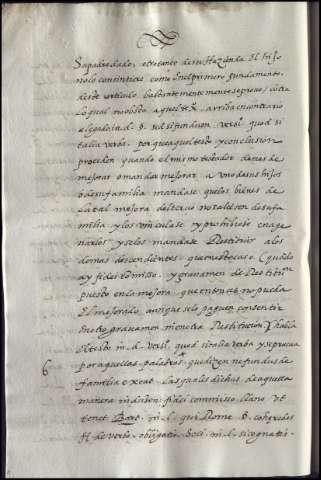 sapadre dado, el tercero de su Hazienda El hijo
no lo consintiere como En el primer fundamento,
deste articulo, bastantemente menos se provo / contra
lo qual no obsta aquel tex. arriba en contrario
alegado in d. §. sed si fundum versi. quod si
talia verba. por que aquel texto y conclusion
proceden quando el mismo testador demas de
mejorar o mandar mejorar a uno de sus hijos
o de su familia mandase que los bienes de
la tal mejora del tercio no saliesen de su fa
milia y los vinculase y prohibiese enage
narlos y se los mandase Restituir a los
demas descendientes que en este caso / quando
ay fideicomisso. y gravamen de Restitucion
puesto en la mejora, que entonces no pueda
El mejorado, aunque sele pague consentir
dicho gravamen men o tra Restitucion / y habla
El texto in. d. versi. quod si talia verba y se prueva
por aquellas palabras que dizen ne fundus de
familia exeat. Las quales dichas de aquella
manera inducen fidei commisso llano ut
tenet Bart. in. l. qui Rome §. cohæredes
ff. de verbo. obligatio. Soci. in. l. sicognati.
6